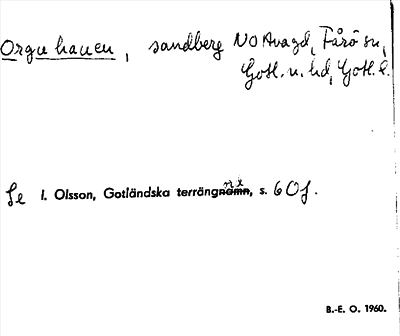 Orgu hauen, sandberg NO Avagd, Fårö sn,
Gotl. n. hd, Gotl. l.
Se I. Olsson, Gotländska terrängnamn, s. 60f.
B.-E. O. 1960.